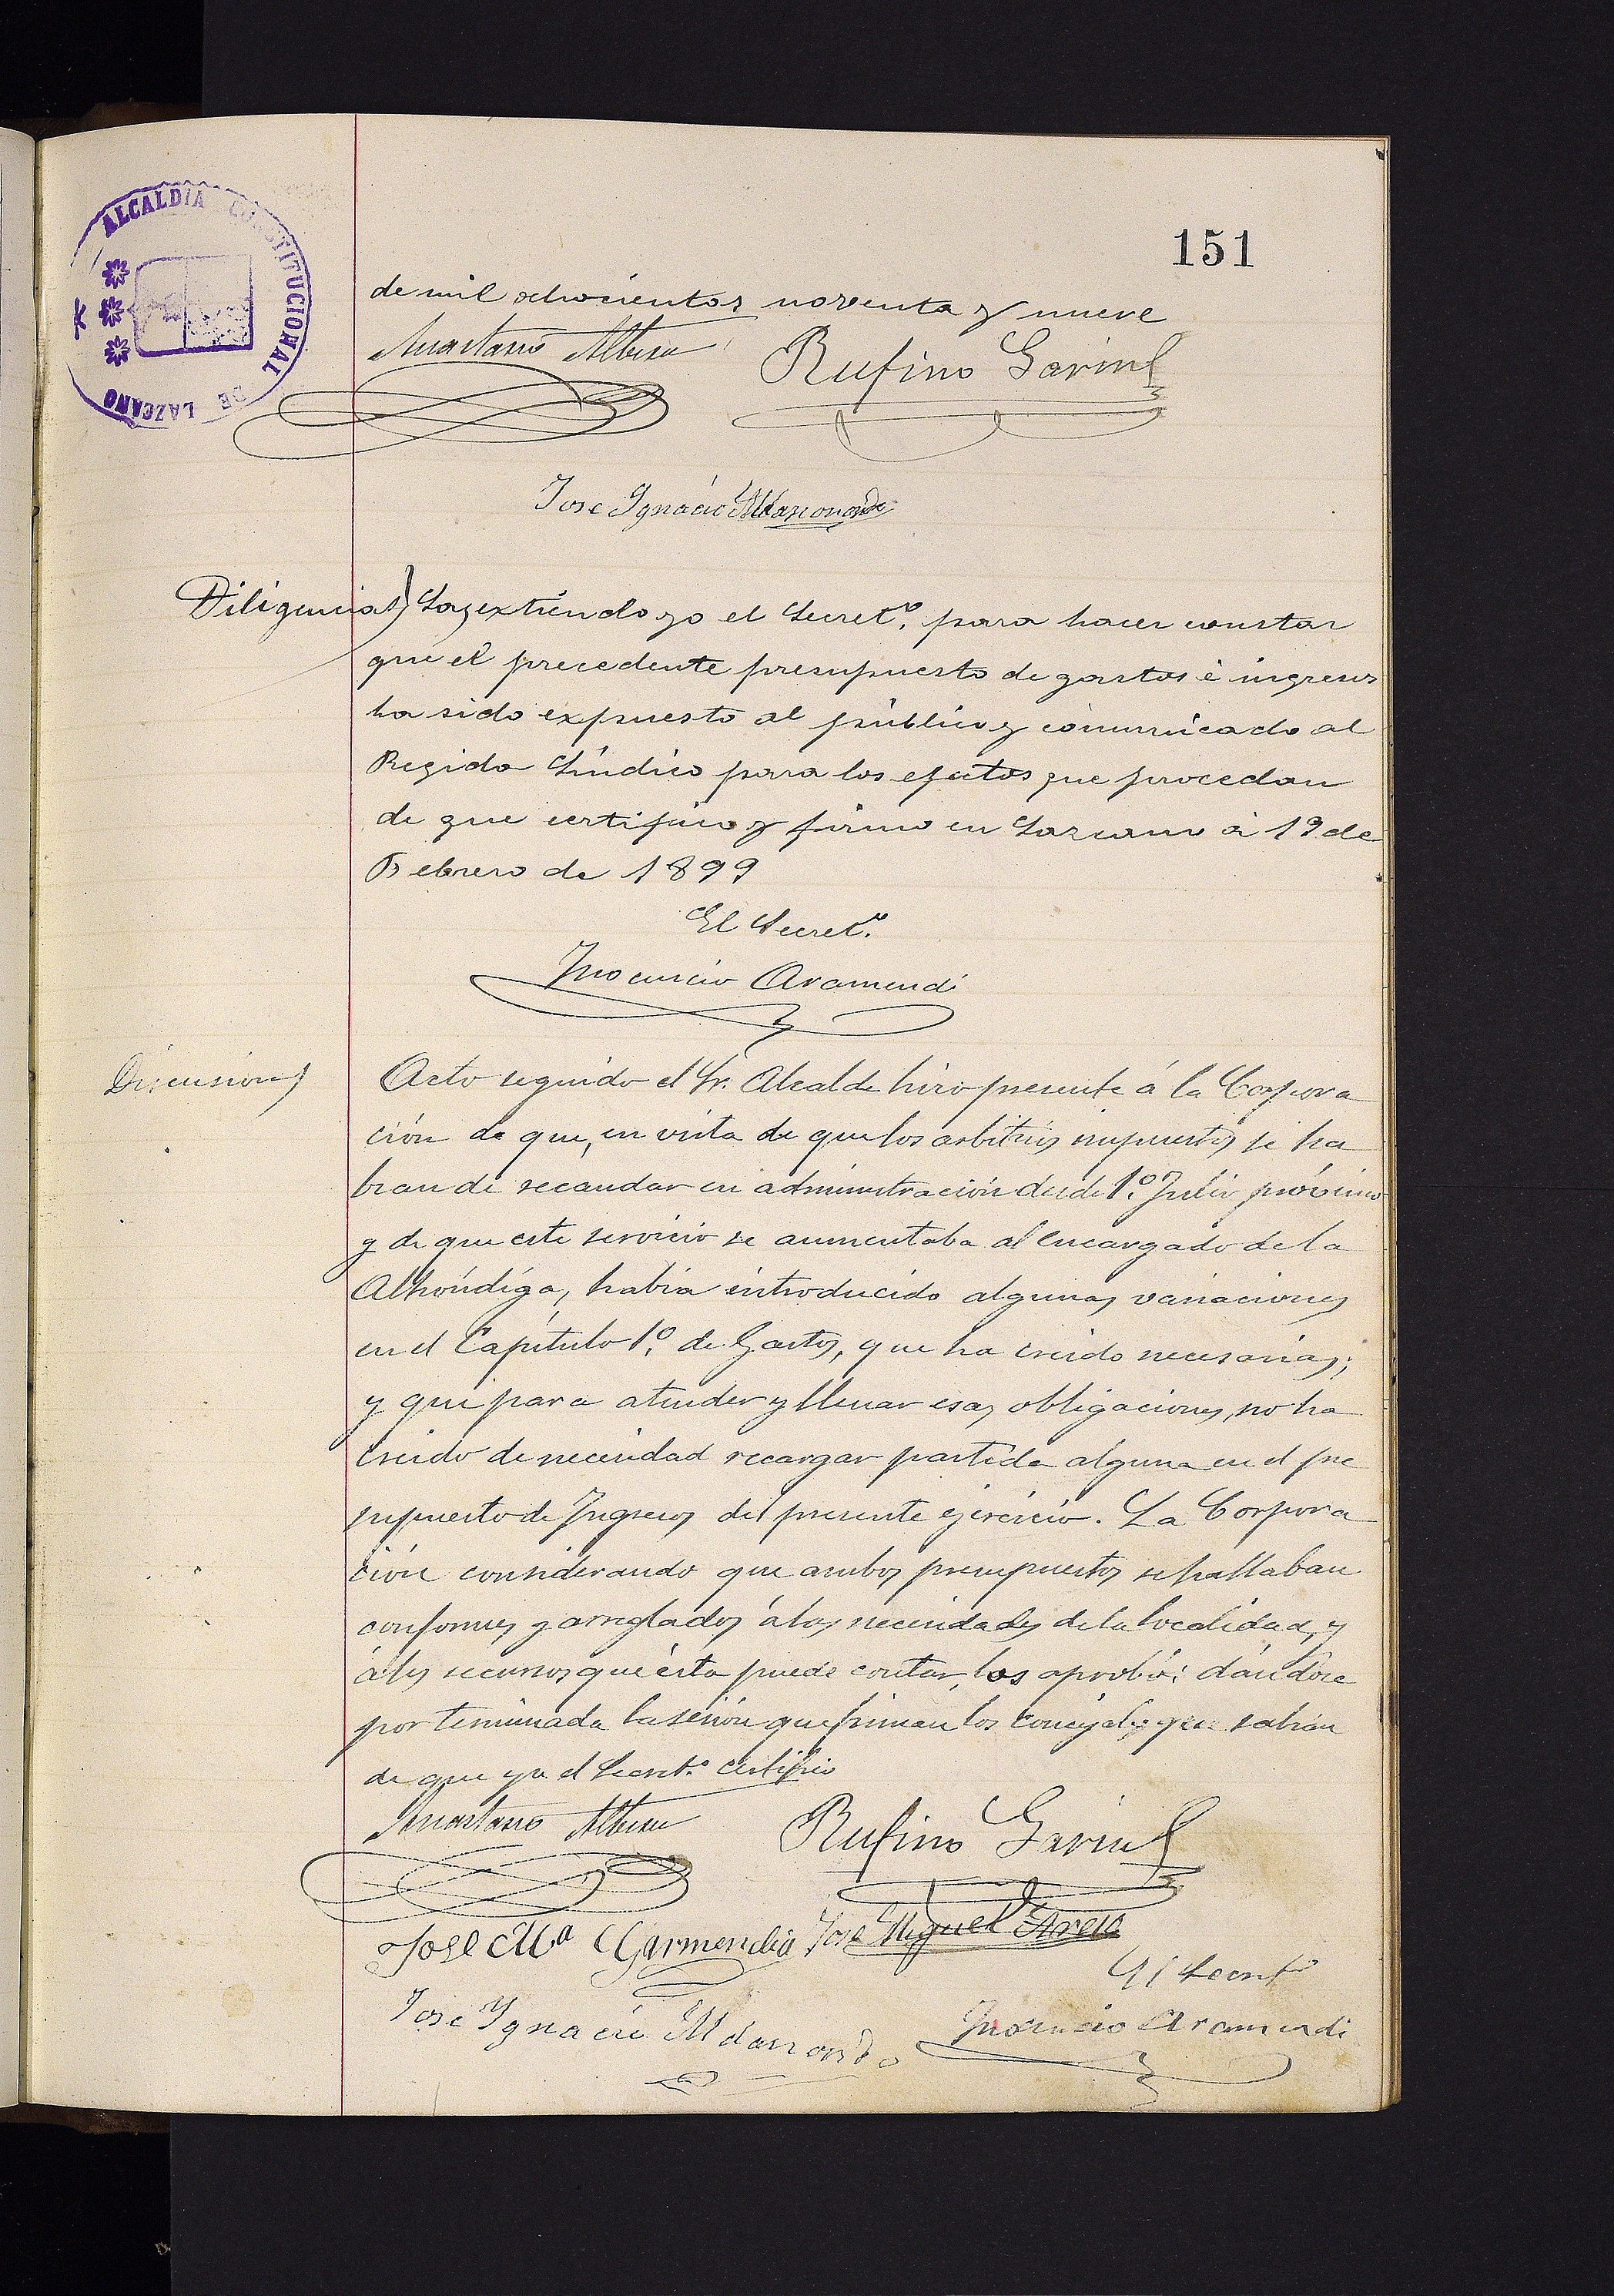 151
ALCALDIA CONSTITUCIONAL DE LAZCANO
de mil ochocientos noventa y nueve
Anastasio Albisu Rufino Garin
Jose Ignacio Aldasoro
Diligencia) La extiendo yo el Secretº. para hacer constar
que el precedente presupuesto de gastos é ingresos
ha sido expuesto al público y comunicado al
Regidor Síndico para los efectos que procedan
de que certifico y firmo en Lazcano á 19 de
Febrero de 1899
El Secretº.
Inocencio Aramendi
Discusion)
Acto seguido el Sr. Alcalde hizo presente á la Corpora
ción de que, en vista de que los arbitrios impuestos se ha
bran de recaudar en administración desde 1º. Julio próximo
y de que este servicio se aumentaba al encargado de la
Alhóndiga, habia introducido algunas variaciones
en el Capítulo 1º. de Gastos, que ha creido necesarias;
y que para atender y llenar esas obligaciones, no ha
creido de necesidad recargar partida alguna en el pre
supuesto de Ingresos del presente ejercicio. La Corpora
ción considerando que ambos presupuestos se hallaban
conformes y arreglados á las necesidades de la localidad, y
á los recursos que ésta puede contar, los aprobó: dándose
por terminada la sesión que firman los concejales que sabian
de que yo el Secretº certifico
Anastasio Albisu Rufino Garin
Jose Mª Garmendia Jose Miguel
El Secretº
Jose Ignacio Inocencio Aramendi